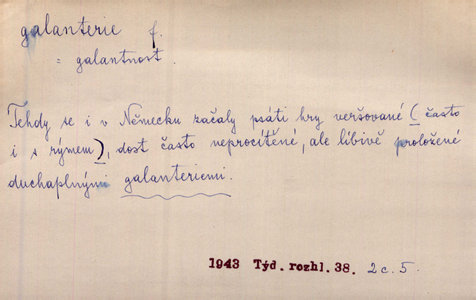 galanterie f.
= galantnost.
Tehdy se i v Německu začaly psáti hry veršované (často
i s rýmem), dost často neprocítěné, ale líbivě proložené
duchaplnými galanteriemi.
1943 Týd. rozhl. 38. 2 c. 5.